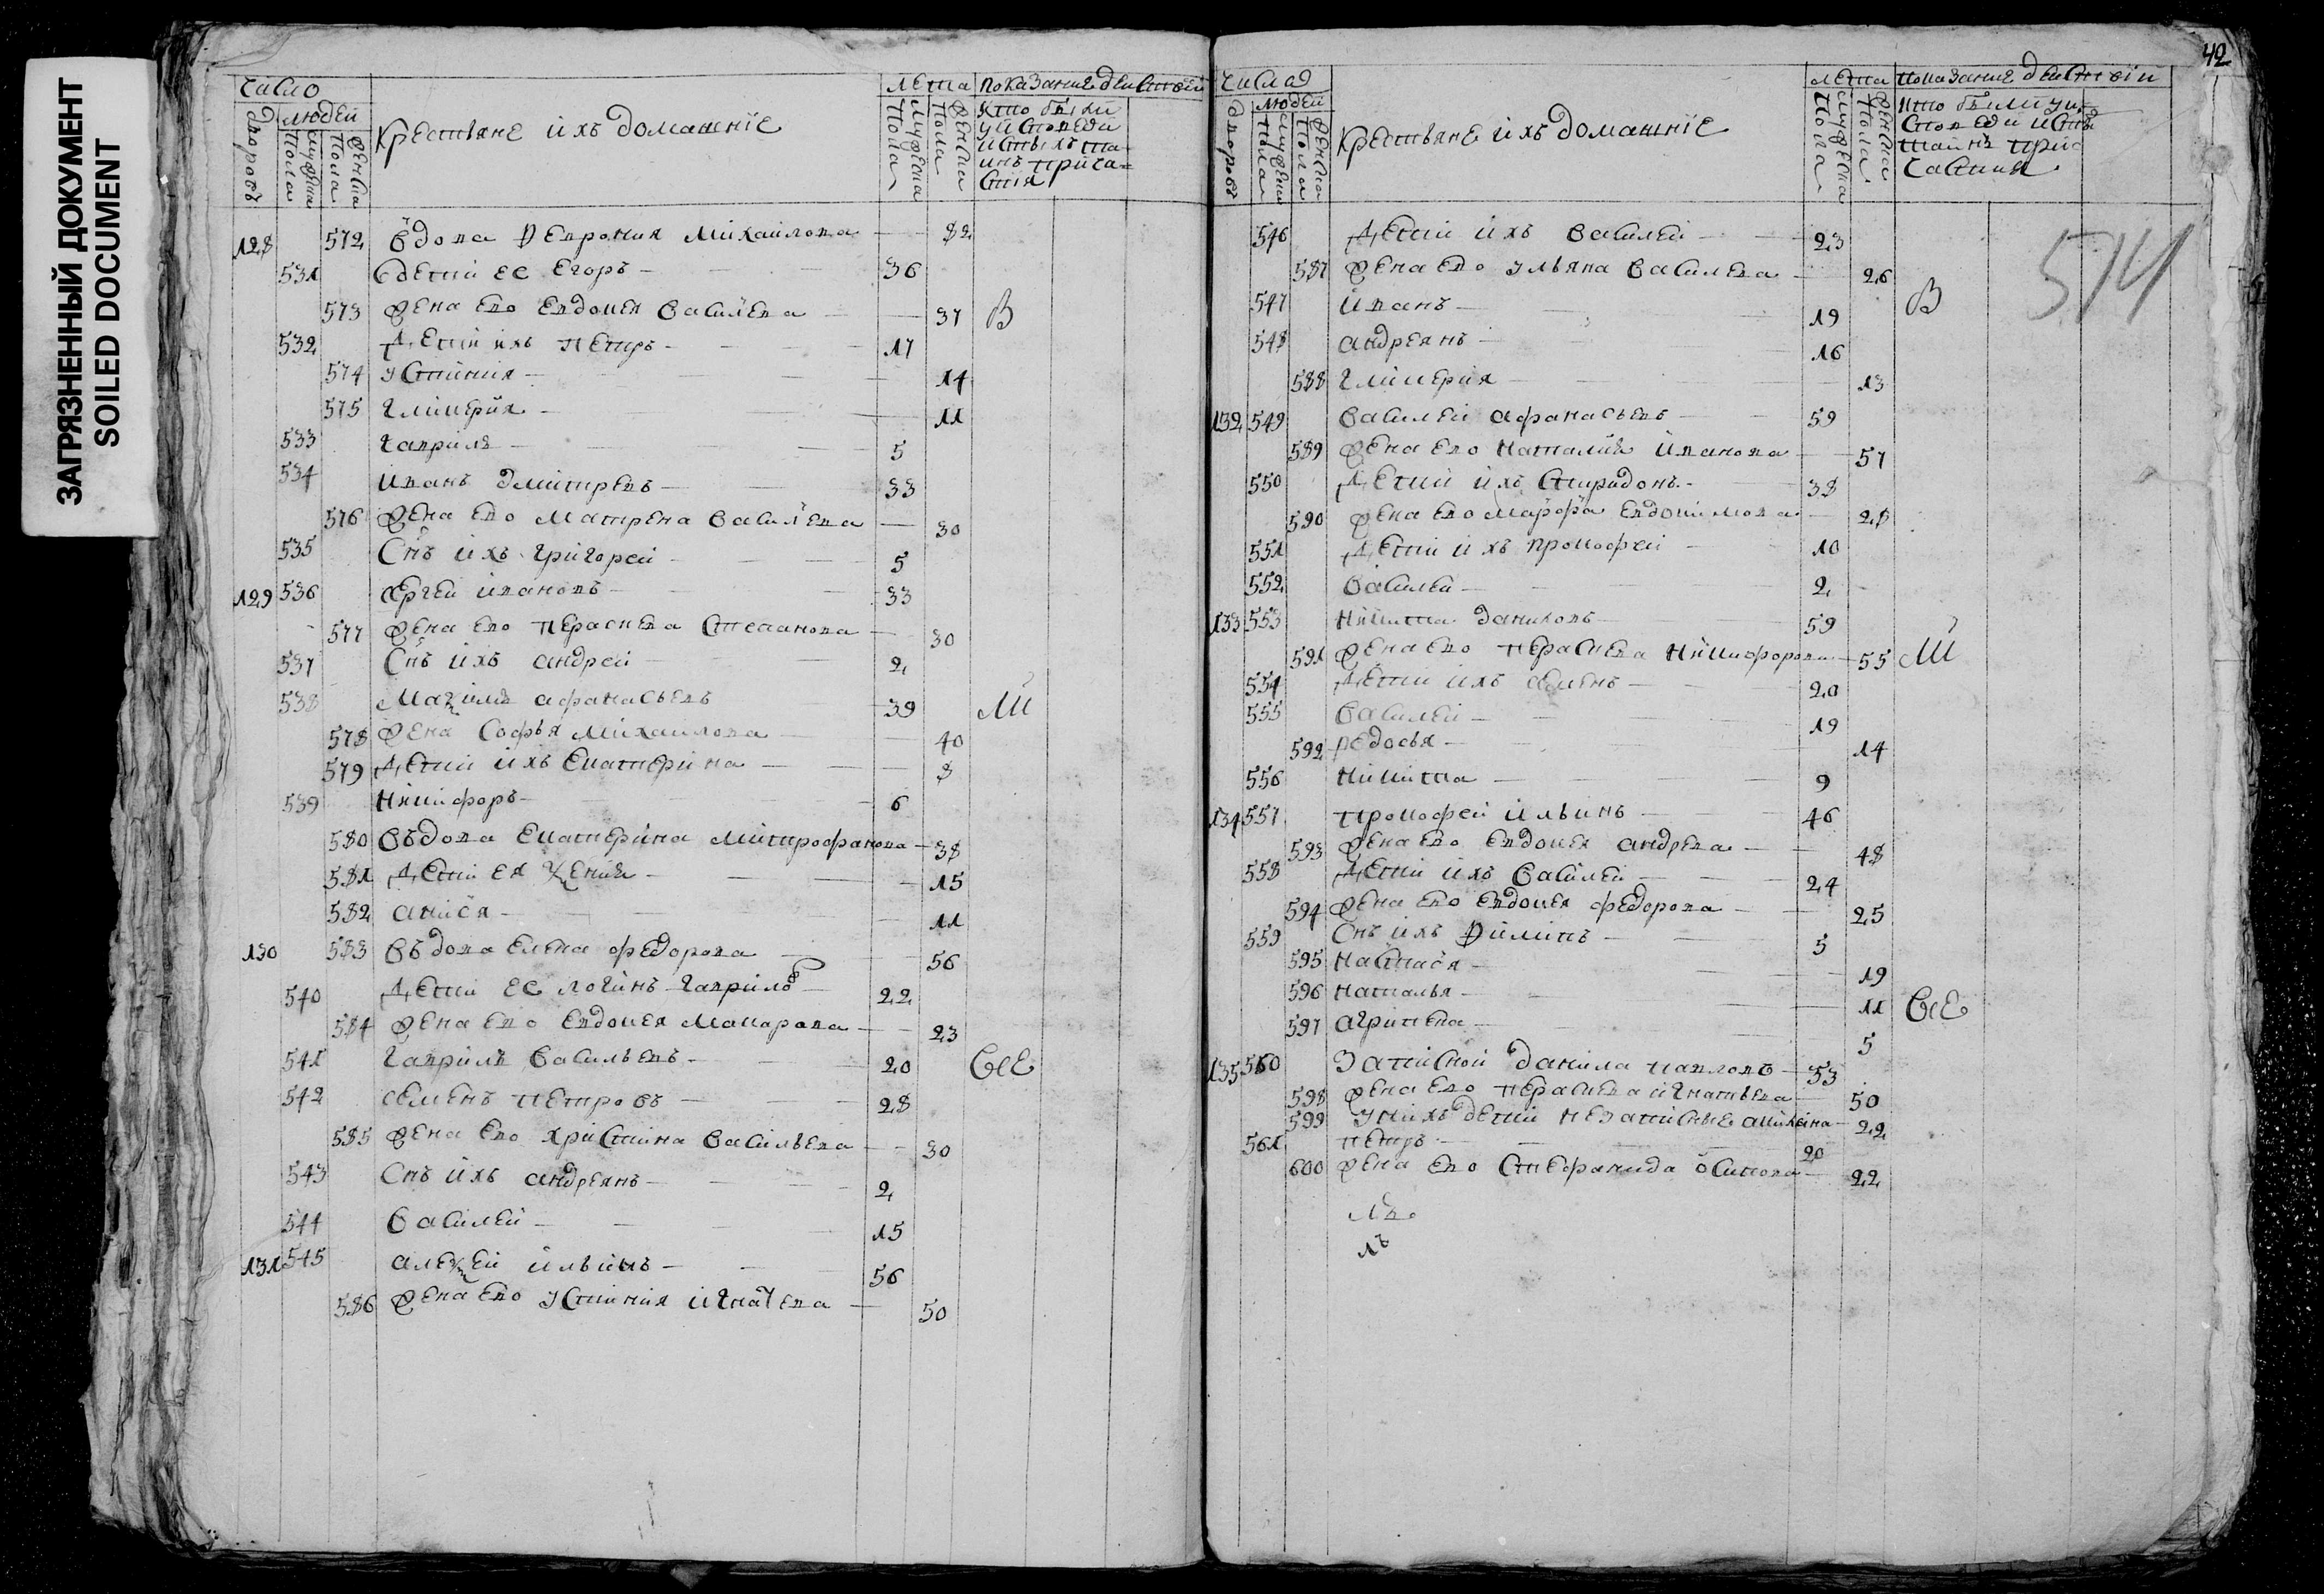 ЗАГРЯЗНЕННЫЙ ДОКУМЕНТ
SOILED DOCUMENT
число
людей
дворовъ
мужеска пола
женска пола
крестьяне ихъ домашніе
лета
мужеска пола
женска пола
показание действии
кто были
у исповеди
и святыхъ та
инъ прича=
стия
128 572 вдова феврониа михаилова 82
531 дети ее егоръ 36
573 жена ево евдокея василева 37 В
532 дети ихъ петръ 17
574 устиния 14
575 гликерия 11
533 гаврила 5
534 иванъ дмитревъ 33
576 жена ево матрена василева 30
535 снъ ихъ григореи 5
129 536 сергеи ивановъ 33
577 жена ево пераскева степанова 30
537 снъ ихъ андреи 2
538 афанасьевъ 39 МИ
578 жена софья михаилова 40
579 дети ихъ екатерина 8
539 никифоръ 6
580 въдова екатерина митрофанова 38
581 дети ея 15
582 анися 11
130 583 въдова елена федорова 56
540 дети ее логинъ гаврилов 22
584 жена ево евдокея макарова 23
541 гаврила васильевъ 20 ВСЕ
542 семенъ петровъ 28
585 жена ево христина васильева 30
543 снъ ихъ андреянъ 2
544 василеи 15
131 545 алеѯеи ильинъ 56
586 жена ево устиния игнатева 50
42
числа
людей
дворовъ
мужеска пола
женска пола
крестьяне ихъ домашніе
лета
мужеска пола
женска пола
показание действии
кто были у и
споведи и свт
таинъ при
частия
574
546 дети ихъ василеи 23
587 жена ево ульяна василева 26
547 иванъ 19 В
548 андреянъ 16
588 гликерия 13
132 549 василеи афанасьевъ 59
589 жена ево наталия иванова 57
550 дети ихъ спиридонъ 38
590 жена ево марфа евдокимова 28
551 дети ихъ прокофеи 10
552 василеи 2
133 553 никита даниловъ 59
591 жена ево пераскева никифорова 55 МИ
554 дети ихъ семенъ 20
555 василеи 19
592 федосья 14
556 никита 9
134 557 прокофеи ильинъ 46
593 жена ево евдокея андрева 48
558 дети ихъ василеи 24
594 жена ево евдокея федорова 25
559 снъ ихъ филипъ 5
595 настася 19
596 наталья 11 ВСЕ
597 агрипена 5
135 560 записной данила павловъ 53
598 жена ево пераскева игнатьева 50
599 у нихъ дети незаписные 22
561 петръ 20
600 жена ево стефанида осипова 22